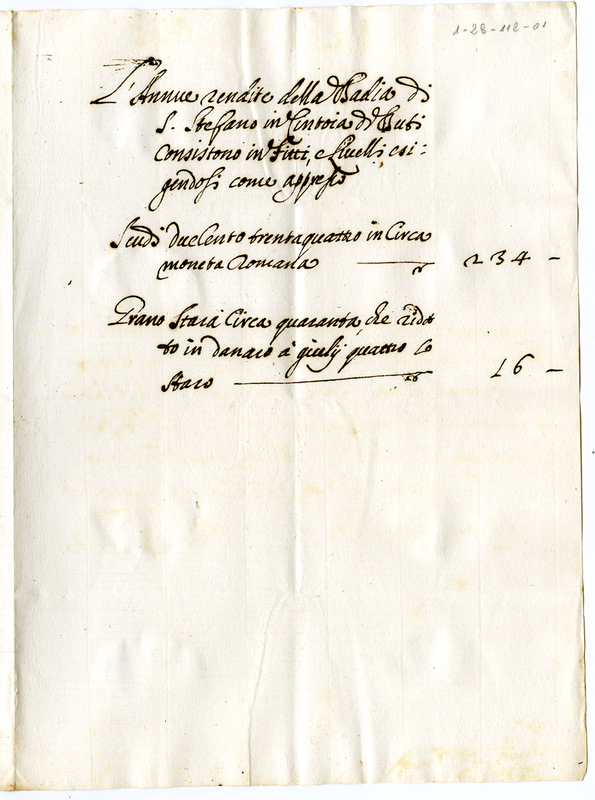 1-28-112-01
L'Annue rendite della Badia di
S. Stefano in Cintoia di Buti
Consistono in Fitti, e Livelli esi:
gendosi come appresso
Scudi duecento trentaquattro in Circa
moneta Romana 234 -
Grano Staia Circa quaranta, che ridot
to in danaro à giulij quattro lo
staro 16 -